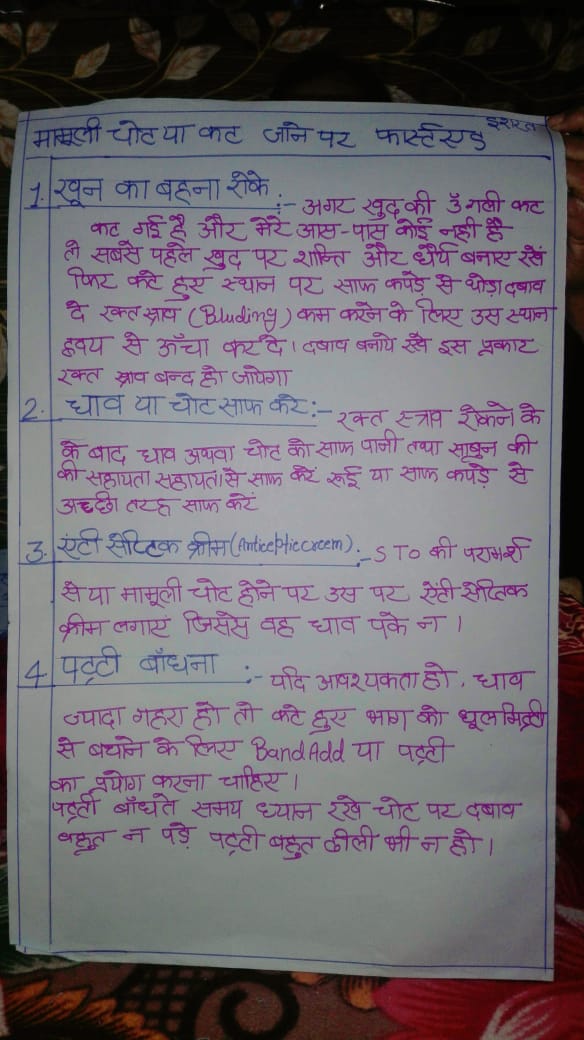 इशरत
मामूली चोट या कट जाने पर फार्स्टएड
1. खून का बहना रोके :- अगर खुद की उँगली कट
कट गई है और मेरे आस-पास कोई नही है
तो सबसे पहले खुद पर शान्ति और धैर्य बनाए रखें
फिर कटे हुए स्थान पर साफ कपडे से थोड़ा दबाव
दे रक्त स्राव (Bluding) कम करने के लिए उस स्थान
ह्रदय से ऊँचा कर दे। दबाव बनाये रखे इस प्रकार
रक्त स्राव बन्द हो जायेगा
2. घाव या चोट साफ करे :- रक्त स्त्राव रोकने के
के बाद घाव अथवा चोट को साफ पानी तथा साबुन की
की सहायता सहायता से साफ करें रूई या साफ कपड़े से
अच्छी तरह साफ करें
3. एंटी सेप्टिक क्रीम (Anticeptic creem) :- S To की परामर्श
से या मामूली चोट होने पर उस पर ऐंटी सेप्तिक
क्रीम लगाएं जिससे वह घाव पके न ।
4 पट्टी बाँधना :- यदि आवश्यकता हो , घाव
ज्यादा गहरा हो तो कटे हुए भाग को धूल मिट्टी
से बचाने के लिए Band Add या पट्टी
का प्रयोग करना चाहिए ।
पट्टी बाँधते समय ध्यान रखे चोट पर दबाव
बहुत न पड़े पट्टी बहुत ढीली भी न हो ।